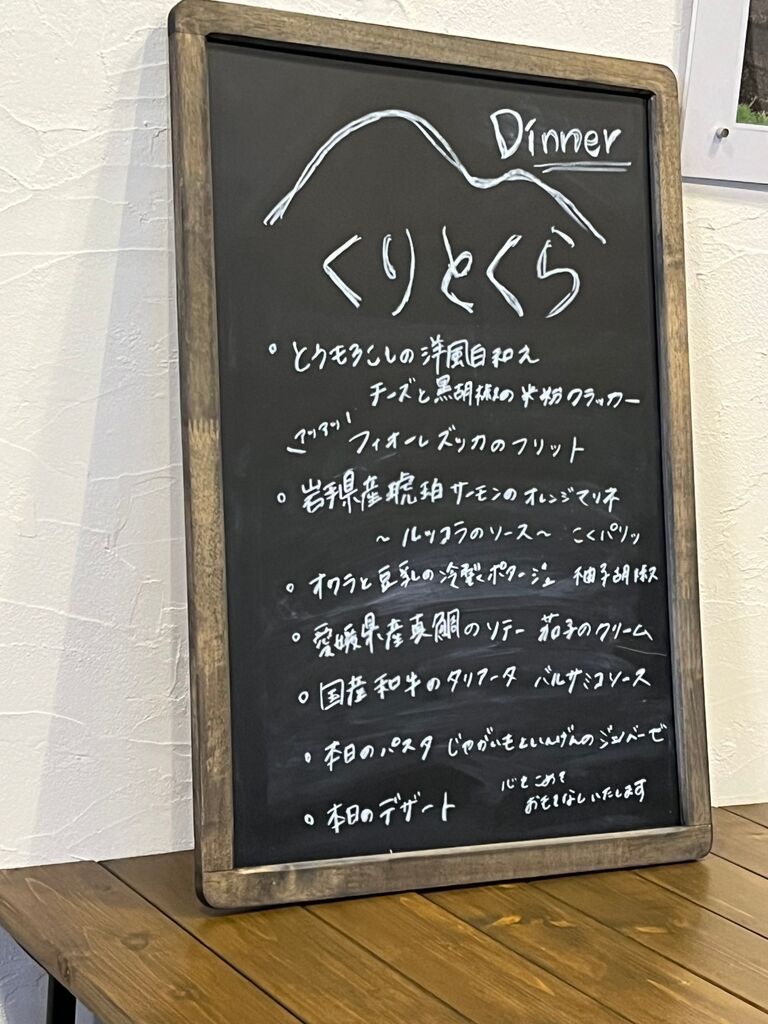 Dinner
くりとくら
。とうもろこしの洋風白和え
チーズと黒胡椒の米粉クラッカー
アツアツ! フィオーレズッカのフリット
。岩手県産琥珀サーモンのオレンジマリネ
~ルッコラのソース~ こくパリッ
。オクラと豆乳の冷製ポタージュ 柚子胡椒
。愛媛県産真鯛のソテー 茄子のクリーム
。国産和牛のタリアータ バルサミコソース
。本日のパスタ じゃがいもといんげんのジェノベーゼ
。本日のデザート
心をこめて
おもてなしいたします